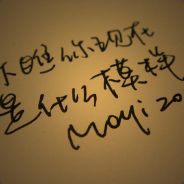 瞧你现在
是什么模样
Mayi 20